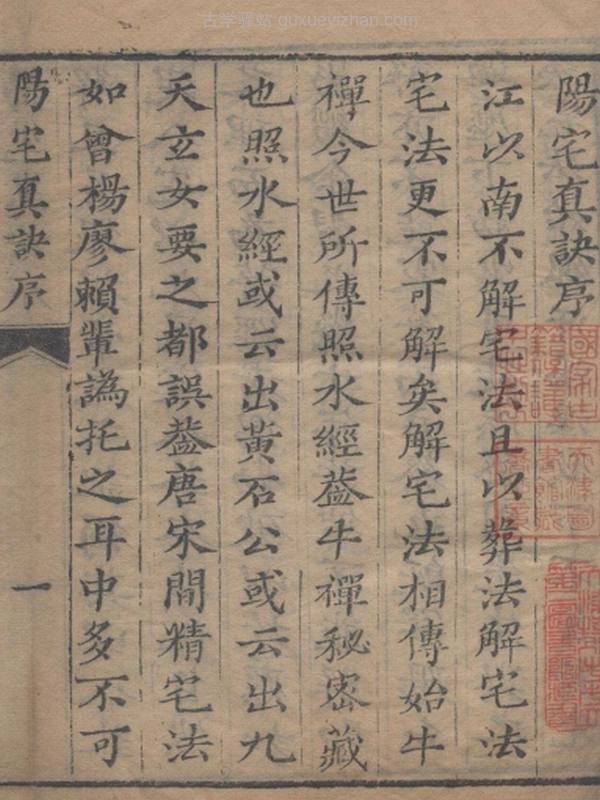 古学驿站 guxueyizhan.com
陽宅真訣序
江以南不解宅法且以葬法解宅法
宅法更不可解矣解宅法相傳始牛
禪今世所傳照水經葢牛禪秘密藏
也照水經或云出黃石公或云出九
天玄女要之都誤葢唐宋間精宅法
如曾楊廖賴輩譌托之耳中多不可
陽宅真訣序
一